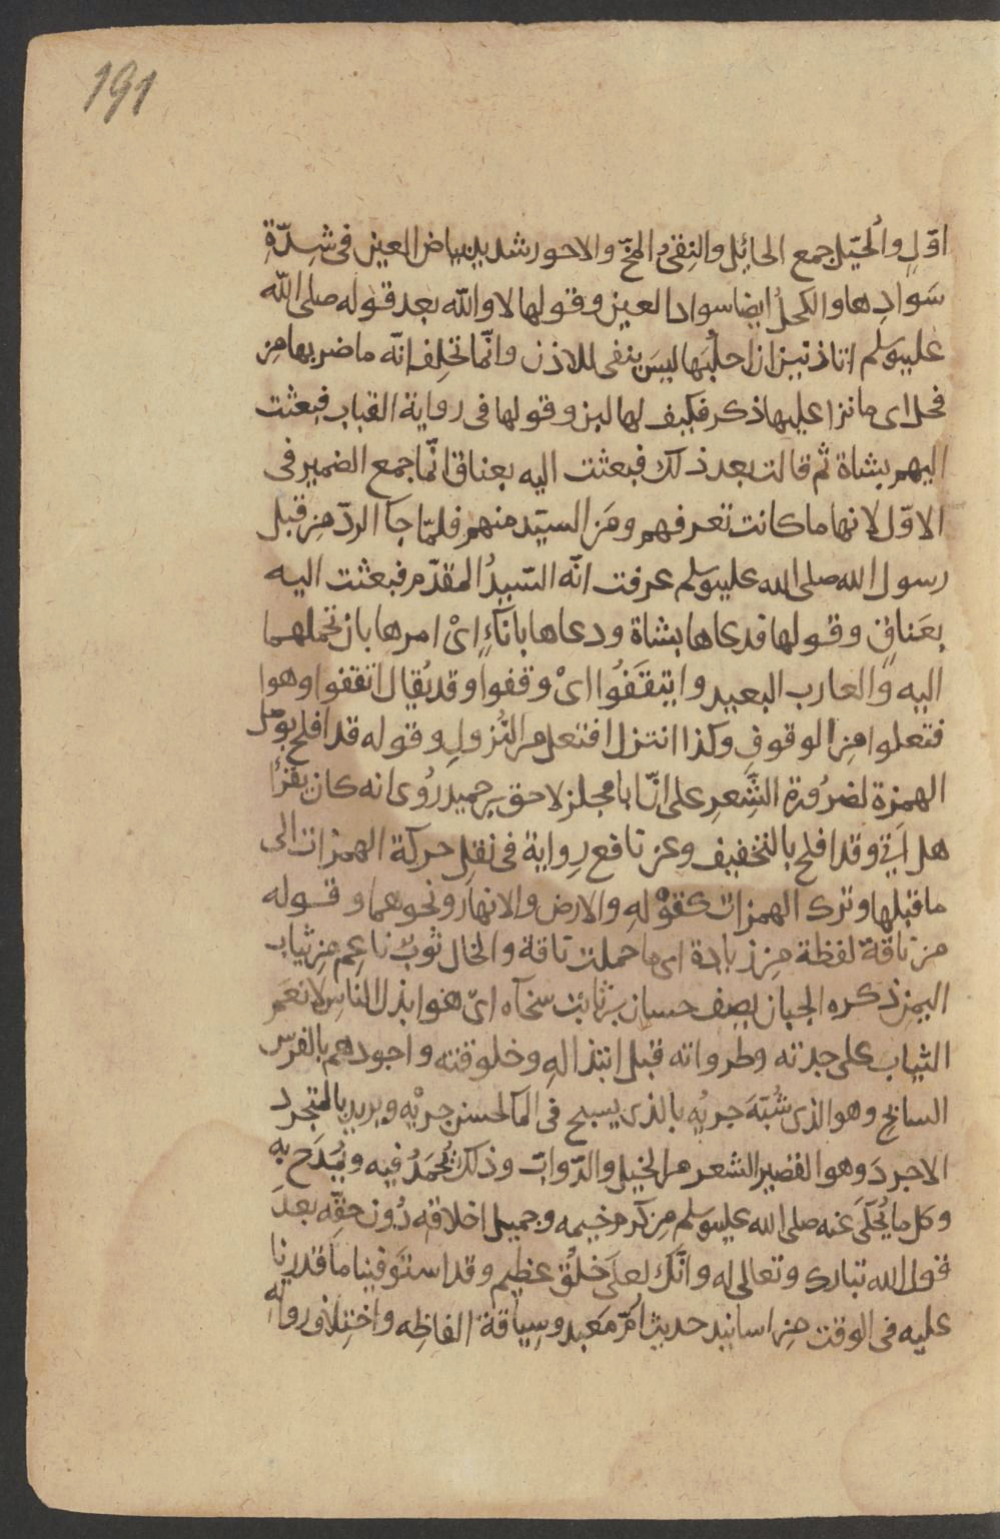 191
اوّلٍ والُحيّل جمع الحائِل والنِقىُ المخّ والاحور شديد بياض العين فى شِدّةِ
سَوادِها والكحلُ ايضا سواد العين وقولها لا والله بعد قوله صلى الله
عليه وسلم اتاذنين ان احلُبَها ليسَ بنفى للاذن وانّما تخلِف انّه ما ضربها من
فحل اى ما نزا عليها ذكر فكيف لها لبن وقولها فى رواية القباب فبعثت
اليهم بشاة ثم قالت بعد ذلك فبعثت اليه بعناق انّما جمع الضمير فى
الاوّل لانها ما كانت تعرفهم ومَن السيّد منهم فلمّا جآ الردّ من قبل
رسول الله صلى الله عليه وسلم عرفت انّه السّيدُ المقدّم فبعثت اليه
بعَناقٍ وقولها فدعاها بشاة ودعاها بانآءٍ اىْ امرها بان تحملهما
اليه والعارب البعيد وايتقَفُوا اىْ وقفوا وقد يُقال اتقفوا وهوا
فتعلوا مِن الوقوفِ وكذا انتزل افتعل من النُزولِ وقوله قد افلح بوصل
الهمزة لضرُورة الشِّعرِ على انّ ابا مجلز لاحق بن حميد رُوى انه كان يقرَأ
هل اَتى وقد افلح بالتخفيف وعن نافع رِواية فى نقلِ حركة الهمزات الى
ما قبلها وترك الهمزات كقوْلهِ والارض والانهار ونحوهما وقوله
من ناقة لفظة مِن زيادة اى ما حملت ناقة والخال ثوبٌ ناعِم مِن ثياب
اليمن ذكره الجبان يصف حسان بن ثابت سخآه اىّ هو ابذل الناسِ لانعَم
الثياب على جدته وطرواته قبل ابتذالهِ وخلوقته واجودهم بالفرس
السابح وهو الذى شُبّهَ جريُهِ بالذى يسبح فى المآ لحسن جريْهِ ويريد بالمتجرد
الاجردَ وهو القصير الشعر من الخيل والدّوابّ وذلك يُحمَدُ فيه ويُمدَح بهِ
وكل ما يُحكَى عنه صلى الله عليه وسلم مِن كرم خيمه وجميل اخلاقه دُون حقِّه بعدَ
قول الله تبارك وتعالى له وانَّك لعلَى خُلُقٍ عظيم وقد استَوفينا ما قدرنا
عليه فى الوقت مِن اسانيد حديث اُمّ مَعبد وسِياقة الفاظِه واختلاف رواتهِ